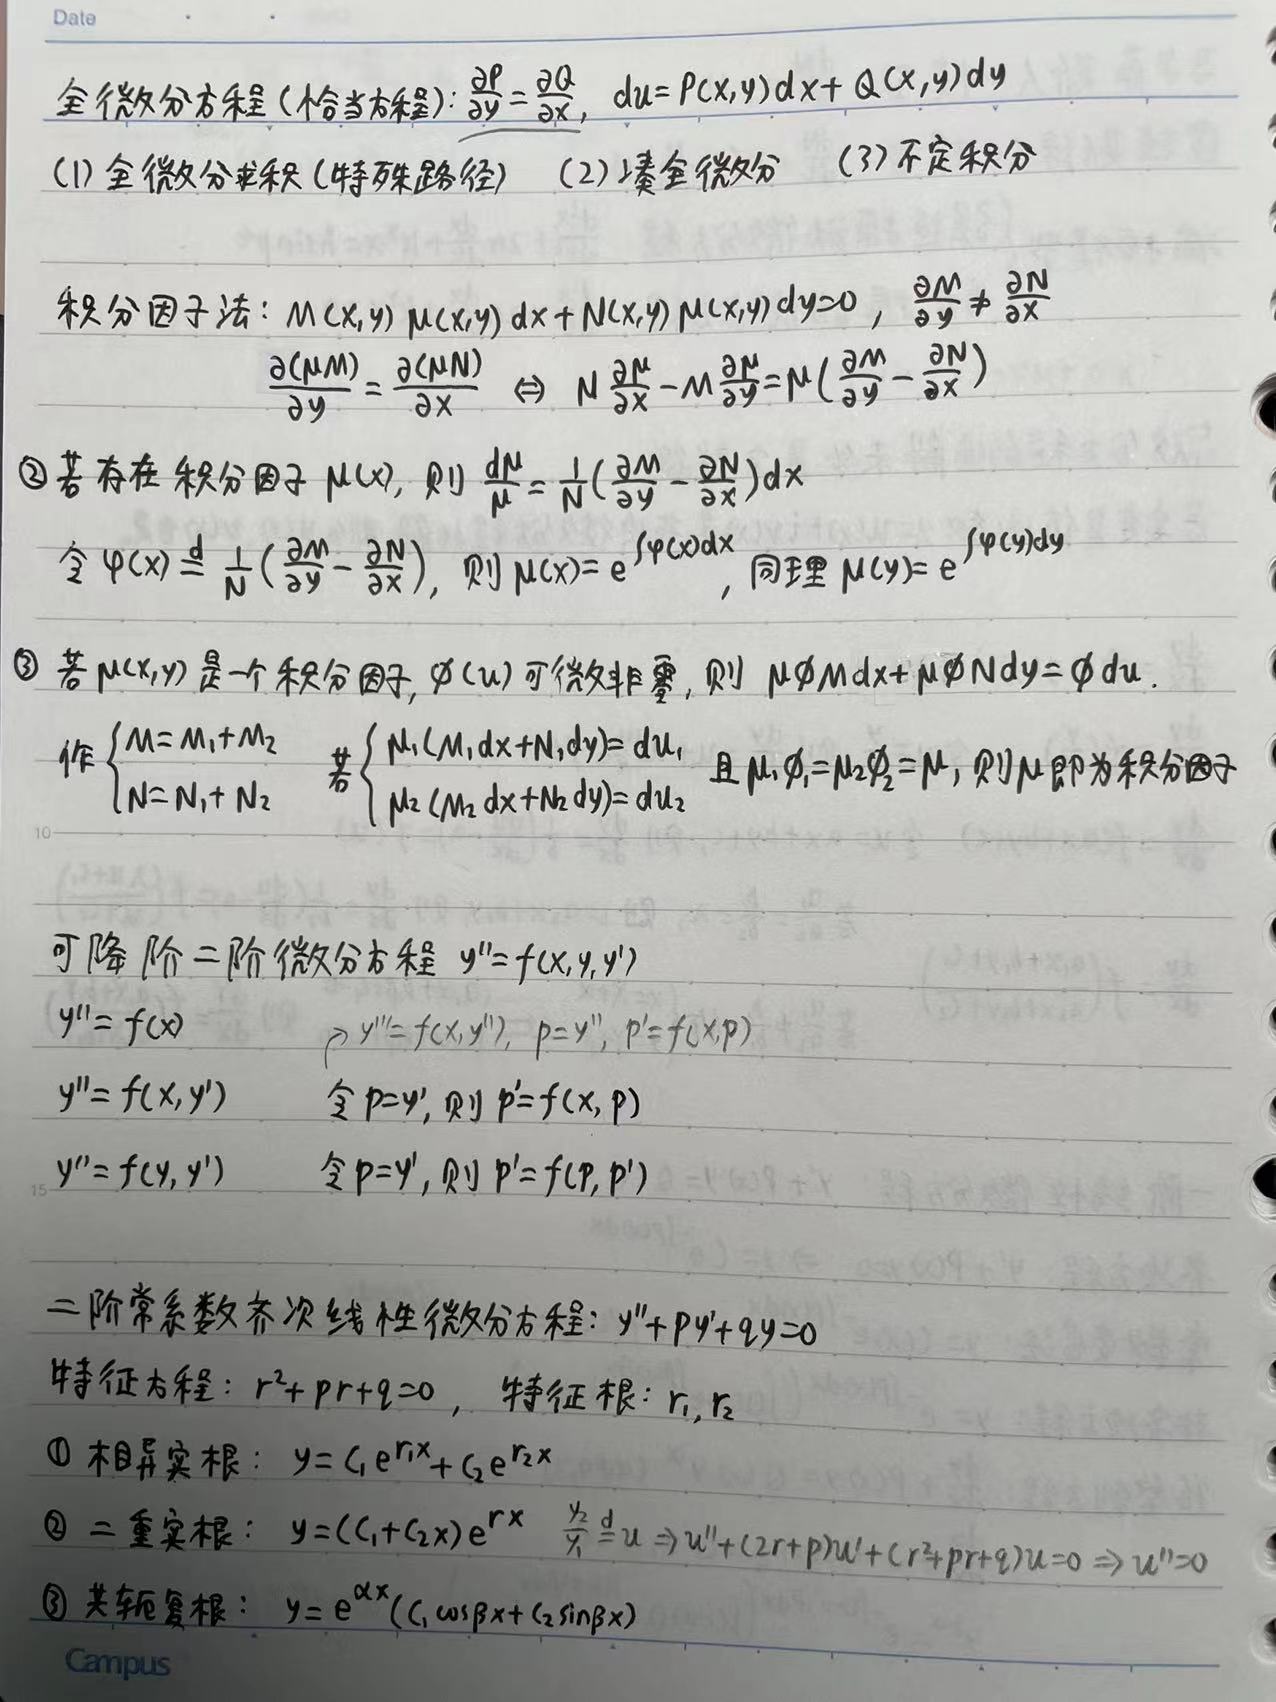 Date
全微分方程(恰当方程): ∂P/∂y = ∂Q/∂x, du = P(x,y)dx + Q(x,y)dy
(1) 全微分求积(特殊路径) (2) 凑全微分 (3) 不定积分
积分因子法: M(x,y) μ(x,y) dx + N(x,y) μ(x,y) dy = 0, ∂M/∂y ≠ ∂N/∂x
∂(μM)/∂y = ∂(μN)/∂x ⇔ N ∂μ/∂x − M ∂μ/∂y = μ(∂M/∂y − ∂N/∂x)
② 若存在积分因子 μ(x), 则 dμ/μ = 1/N (∂M/∂y − ∂N/∂x) dx
令 φ(x) ≝ 1/N (∂M/∂y − ∂N/∂x), 则 μ(x) = e^∫φ(x)dx, 同理 μ(y) = e^∫φ(y)dy
③ 若 μ(x,y) 是一个积分因子, ∅(u) 可微非零, 则 μ∅Mdx + μ∅Ndy = ∅du.
作 { M = M₁ + M₂ N = N₁ + N₂ 若 { μ₁(M₁dx + N₁dy) = du₁ μ₂(M₂dx + N₂dy) = du₂ 且 μ₁∅₁ = μ₂∅₂ = μ, 则 μ 即为积分因子
10
可降阶二阶微分方程 y'' = f(x, y, y')
y'' = f(x) y''' = f(x, y''), p = y'', p' = f(x, p)
y'' = f(x, y') 令 p = y', 则 p' = f(x, p)
y'' = f(y, y') 令 p = y', 则 p' = f(p, p')
15
二阶常系数齐次线性微分方程: y'' + py' + qy = 0
特征方程: r² + pr + q = 0, 特征根: r₁, r₂
① 相异实根: y = C₁e^r₁x + C₂e^r₂x
② 二重实根: y = (C₁ + C₂x)e^rx y₂/y₁ ≝ u ⇒ u'' + (2r+p)u' + (r²+pr+q)u = 0 ⇒ u'' = 0
③ 共轭复根: y = e^αx (C₁cosβx + C₂sinβx)
Campus